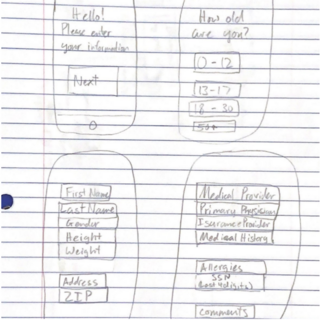 Hello!
Please enter
your information
Next
How old
are you?
0-12
13-17
18-30
50+
First Name
Last Name
Gender
Height
Weight
Address
ZIP
Medical Provider
Primary
Provider
Medical History
Allergies
SSN
(last 4 digits)
Comments